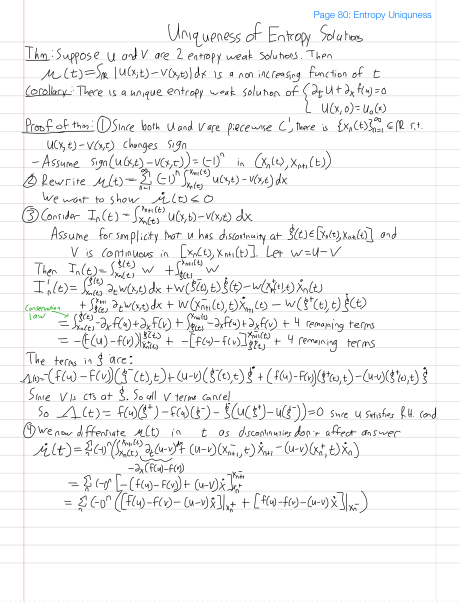 Page 80: Entropy Uniquness
Uniqueness of Entropy Solutions
Thm: Suppose U and V are 2 entropy weak solutions. Then
μ(t)=∫_ℝ |U(x,t)-V(x,t)|dx is a non increasing function of t
Corollary: There is a unique entropy weak solution of { ∂_t U + ∂_x f(u)=0
U(x,0)=U_0(x)
Proof of thm: ① Since both U and V are piecewise C', there is {x_n(t)}_{n=1}^∞ ⊆ ℝ s.t.
U(x,t)-V(x,t) changes sign
- Assume sign(U(x,t)-V(x,t))=(-1)^n in (x_n(t), x_{n+1}(t))
② Rewrite μ(t)=Σ_{n=1}^∞ (-1)^n ∫_{x_n(t)}^{x_{n+1}(t)} U(x,t)-V(x,t)dx
We want to show μ̇(t)≤0
③ Consider I_n(t)=∫_{x_n(t)}^{x_{n+1}(t)} U(x,t)-V(x,t) dx
Assume for simplicity that u has discontinuity at ξ(t)∈[x_n(t),x_{n+1}(t)] and
V is continuous in [x_n(t),x_{n+1}(t)]. Let w=U-V
Then I_n(t)=∫_{x_n(t)}^{ξ(t)} w + ∫_{ξ(t)}^{x_{n+1}(t)} w
I'_n(t)=∫_{x_n(t)}^{ξ(t)} ∂_t w(x,t)dx + w(ξ^-(t),t)ξ̇(t)-w(x_n^+(t),t)ẋ_n(t)
+∫_{ξ(t)}^{x_{n+1}} ∂_t w(x,t)dx + w(x_{n+1}^-(t),t)ẋ_{n+1}(t) - w(ξ^+(t),t)ξ̇(t)
Conservation law
=∫_{x_n(t)}^{ξ(t)} -∂_x f(u)+∂_x f(v) + ∫_{ξ(t)}^{x_{n+1}(t)} -∂_x f(u)+∂_x f(v) + 4 remaining terms
= -(f(u)-f(v))|_{x_n^+(t)}^{ξ^-(t)} + -[f(u)-f(v)]_{ξ^+(t)}^{x_{n+1}^-(t)} + 4 remaining terms
The terms in ξ are:
Λ(t)=-(f(u)-f(v))(ξ^-(t),t)+(u-v)(ξ^-(t),t)ξ̇ +(f(u)-f(v))(ξ^+(t),t)-(u-v)(ξ^+(t),t)ξ̇
Since V is cts at ξ. So all V terms cancel
So Λ(t) = f(u)(ξ^+)-f(u)(ξ^-)-ξ̇(u(ξ^+)-u(ξ^-))=0 since u satisfies R.H. cond
④ We now differentiate μ(t) in t as discontinuities don't affect answer
μ̇(t)=Σ_n(-1)^n(∫_{x_n(t)}^{x_{n+1}(t)} ∂_t(u-v)+(u-v)(x_{n+1}^-,t)ẋ_{n+1}-(u-v)(x_n^+,t)ẋ_n)
-∂_x(f(u)-f(v))
=Σ_n(-1)^n[-(f(u)-f(v))+(u-v)ẋ]_{x_n^+}^{x_{n+1}^-}
=Σ_n(-1)^n([f(u)-f(v)-(u-v)ẋ]|_{x_n^+}+[f(u)-f(v)-(u-v)ẋ]|_{x_n^-})